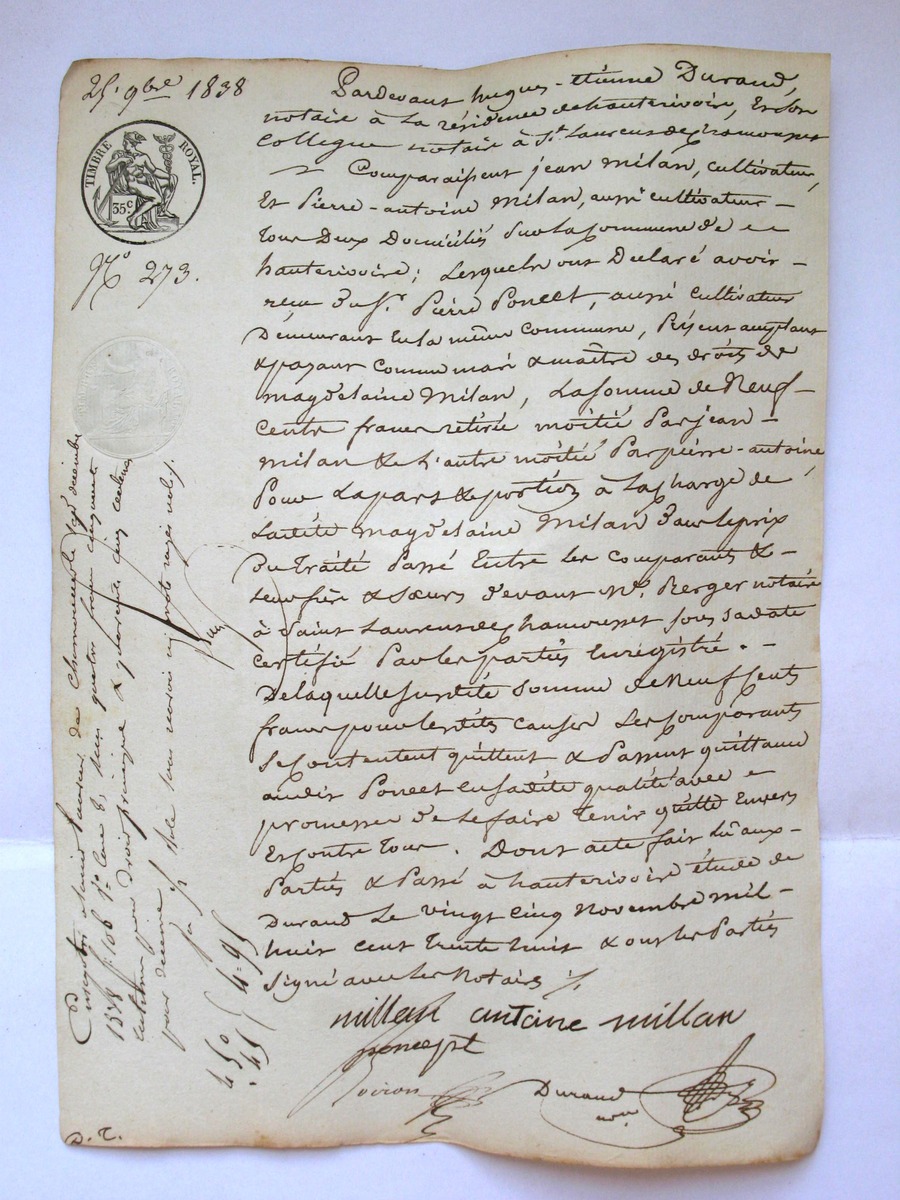 25. 9bre 1838
TIMBRE ROYAL.
35c
No 273.
Pardevant hugues-étienne Durand,
notaire à la résidence de hauterivoire, Et son
Collegue notaire à St. Laurent de Chamousset
Comparaissent jean Milan, cultivateur,
Et Pierre-antoine Milan, aussi cultivateur
tous Deux Domiciliés Sur la Commune de
hauterivoire; Lesquels ont Déclaré avoir
reçu du Sr. Pierre Poncet, aussi cultivateur
Demeurant En la même Commune, Présent acceptant
& payant comme mari & maître des droits de
magdelaine Milan, La somme de Neuf
Cents francs retirée moitié Par jean
milan & L'autre moitié Par pierre-antoine
Pour La part & portion à La Charge de
Ladite magdelaine Milan dans le prix
Du traité Passé Entre les comparants &
Leurs frère & Sœurs devant Me. Berger notaire
à Saint Laurent de Chamousset sous sa date
certifié Par les parties Enregistré.
De laquelle susdite somme de Neuf Cents
francs pour les dites causes Les Comparants
se Contentent quittent & Passent quittance
audit Poncet en sadite qualité avec
promesse de le faire tenir quitte Envers
Et Contre tous. Dont acte fait Lû aux
Parties & Passé à hauterivoire étude de
Durand Le vingt cinq Novembre mil
huit cent trente huit & ont les Parties
Signé avec les Notaires
millan antoine millan
poncept
Durand
nore
D. T.
Enregistré à Saint Laurent de Chamousset le décembre
1838 fo 106 Ro case 8, reçu quatre francs cinquante
centimes pour droit principal & quarante cinq centimes
pour décime
4 50
. 45
4=95